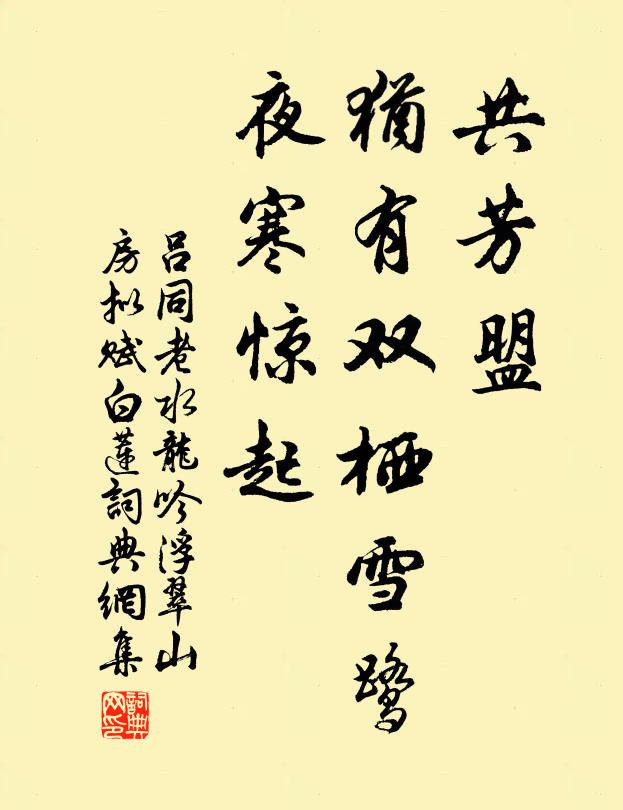 共芳盟
犹有双栖雪鹭
夜寒惊起
吕同老水龍吟浮翠山
房拟赋白蓮詞典網集
詞典网印